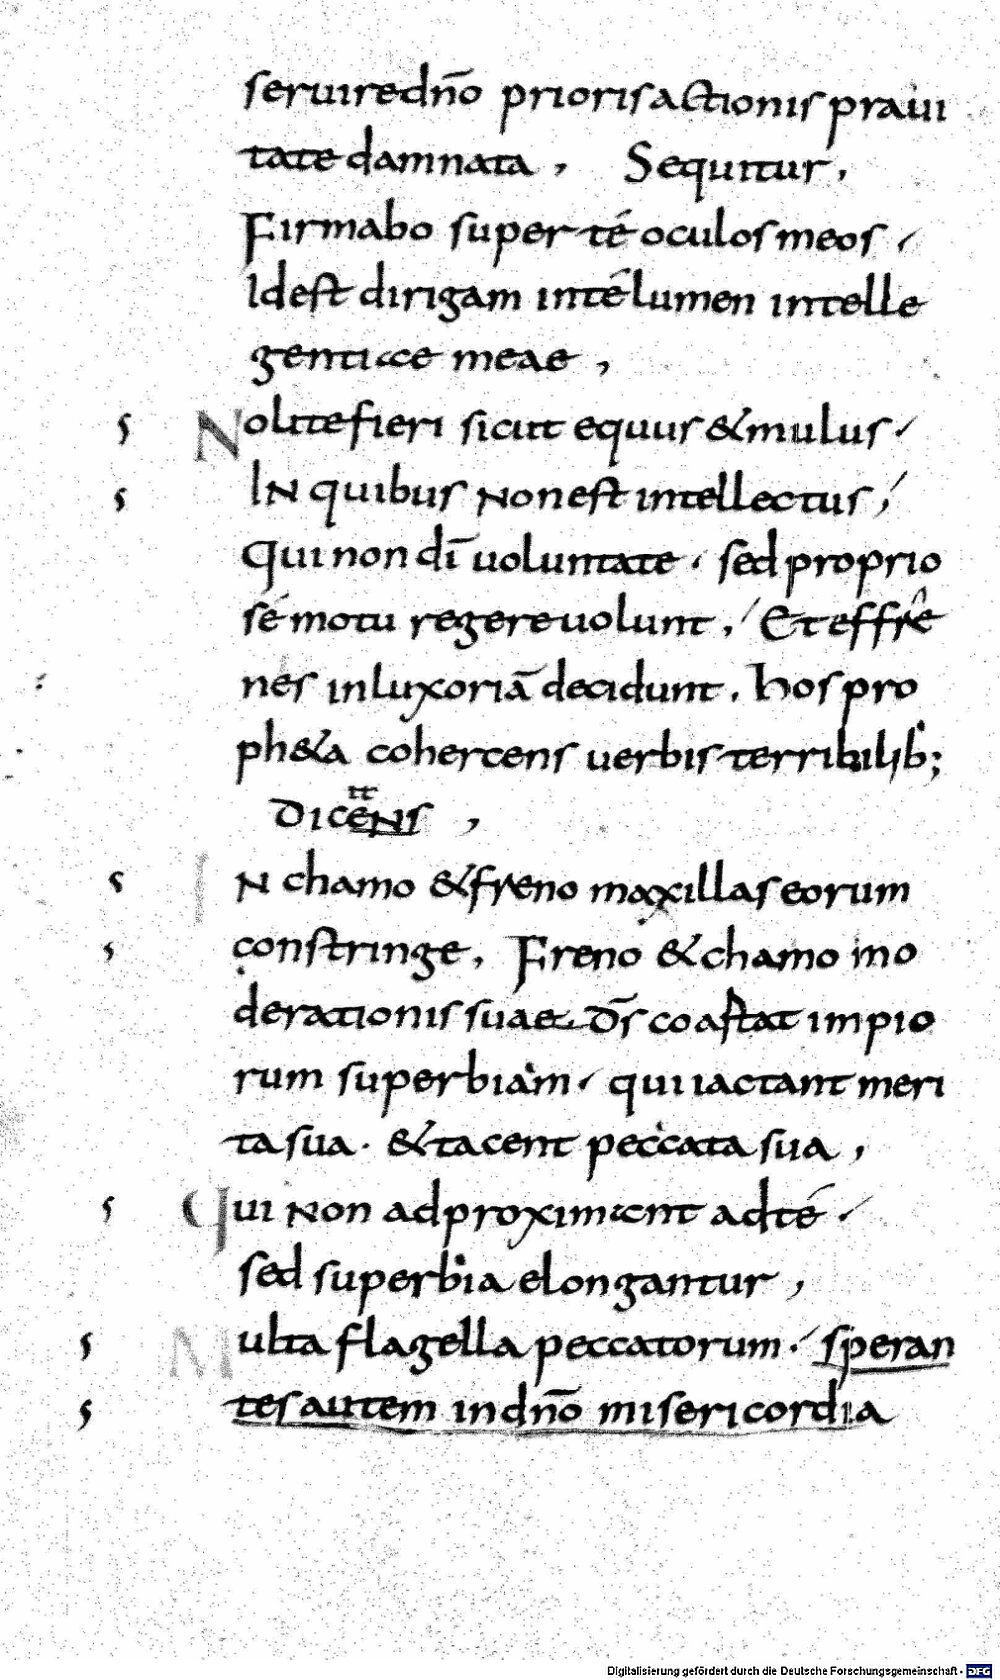 seruire dn̄o prioris actionis praui
tate damnata, Sequitur,
Firmabo super té oculos meos,
Idest dirigam inté lumen intelle
gentiae meae,
s Nolite fieri sicut equus & mulus,
s IN quibus non est intellectus,
Qui non dī uoluntate. sed proprio
sé motu regere uolunt, Et effre
nes in luxoriā decidunt. hos pro
ph&a cohercens uerbis terribilib;
dicens,
s IN chamo & freno maxillas eorum
s constringe, Freno & chamo mo
derationis suae d̄s coastat impio
rum superbiam, qui iactant meri
ta sua. & tacent peccata sua,
s Qui non adproximant ad té,
sed superbia elongantur,
s Multa flagella peccatorum. speran
s tes autem in dn̄o misericordia
Digitalisierung gefördert durch die Deutsche Forschungsgemeinschaft - DFG